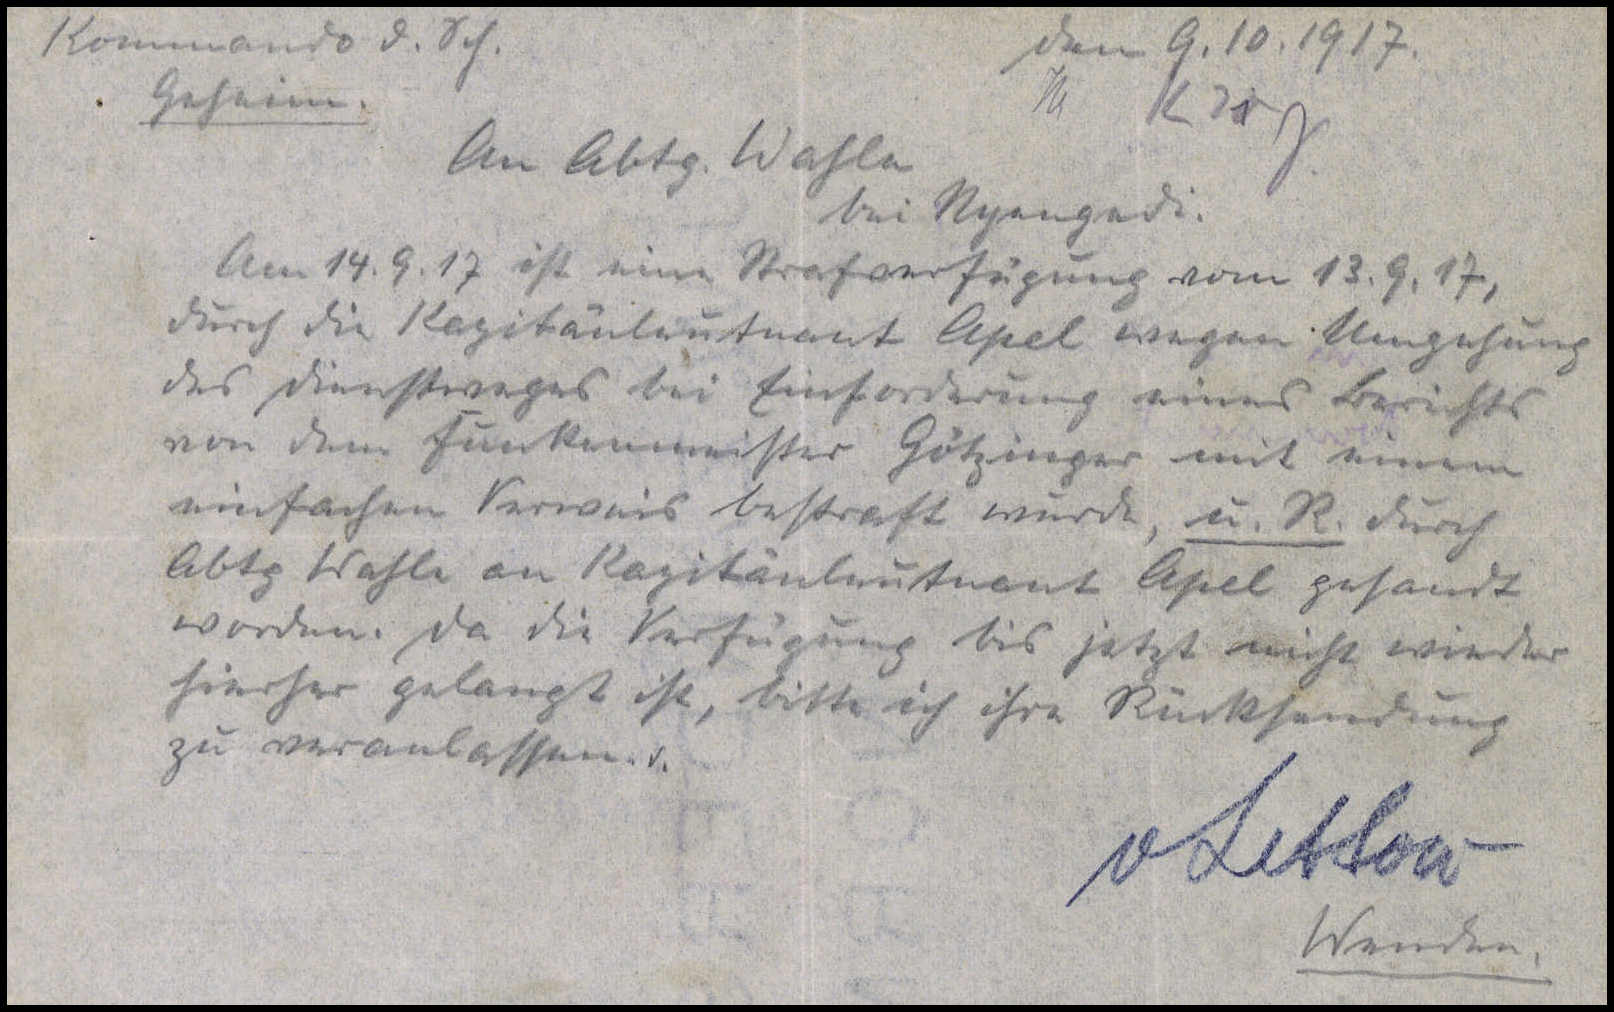 Kommando d. Sch.
den 9.10.1917.
Geheim.
An Abtg. Wahle
bei Nyengedi.
Am 14.9.17 ist eine Strafverfügung vom 13.9.17,
durch die Kapitänleutnant Apel wegen Umgehung
des Dienstweges bei Einforderung eines Berichts
von dem Funkenmeister Götzinger mit einem
einfachen Verweis bestraft wurde, u. R. durch
Abtg Wahle an Kapitänleutnant Apel gesandt
worden. Da die Verfügung bis jetzt nicht wieder
hierher gelangt ist, bitte ich ihre Rücksendung
zu veranlassen.
v Lettow
Wenden.